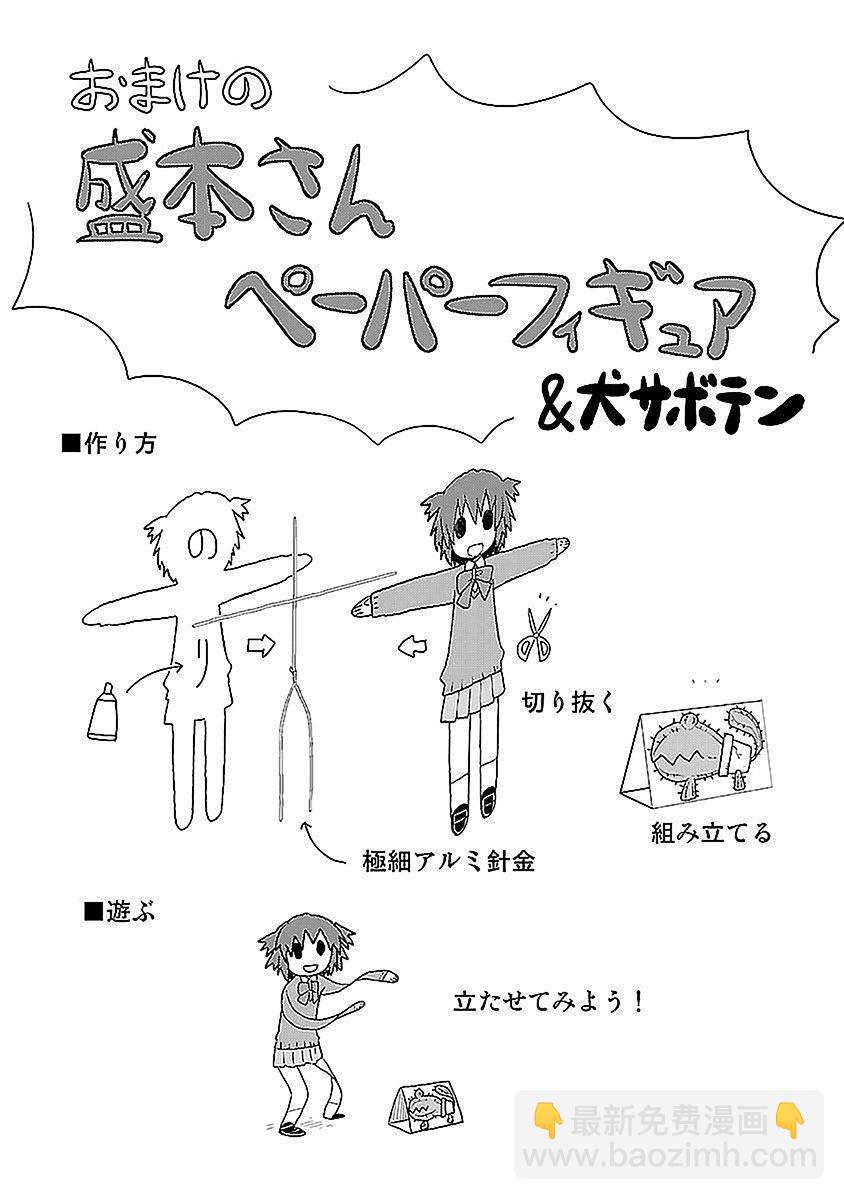 おまけの
盛本さん
ペーパーフィギュア
&犬サボテン
■作り方
のり
切り抜く
組み立てる
極細アルミ針金
■遊ぶ
立たせてみよう！
👇最新免费漫画👇
www.baozimh.com